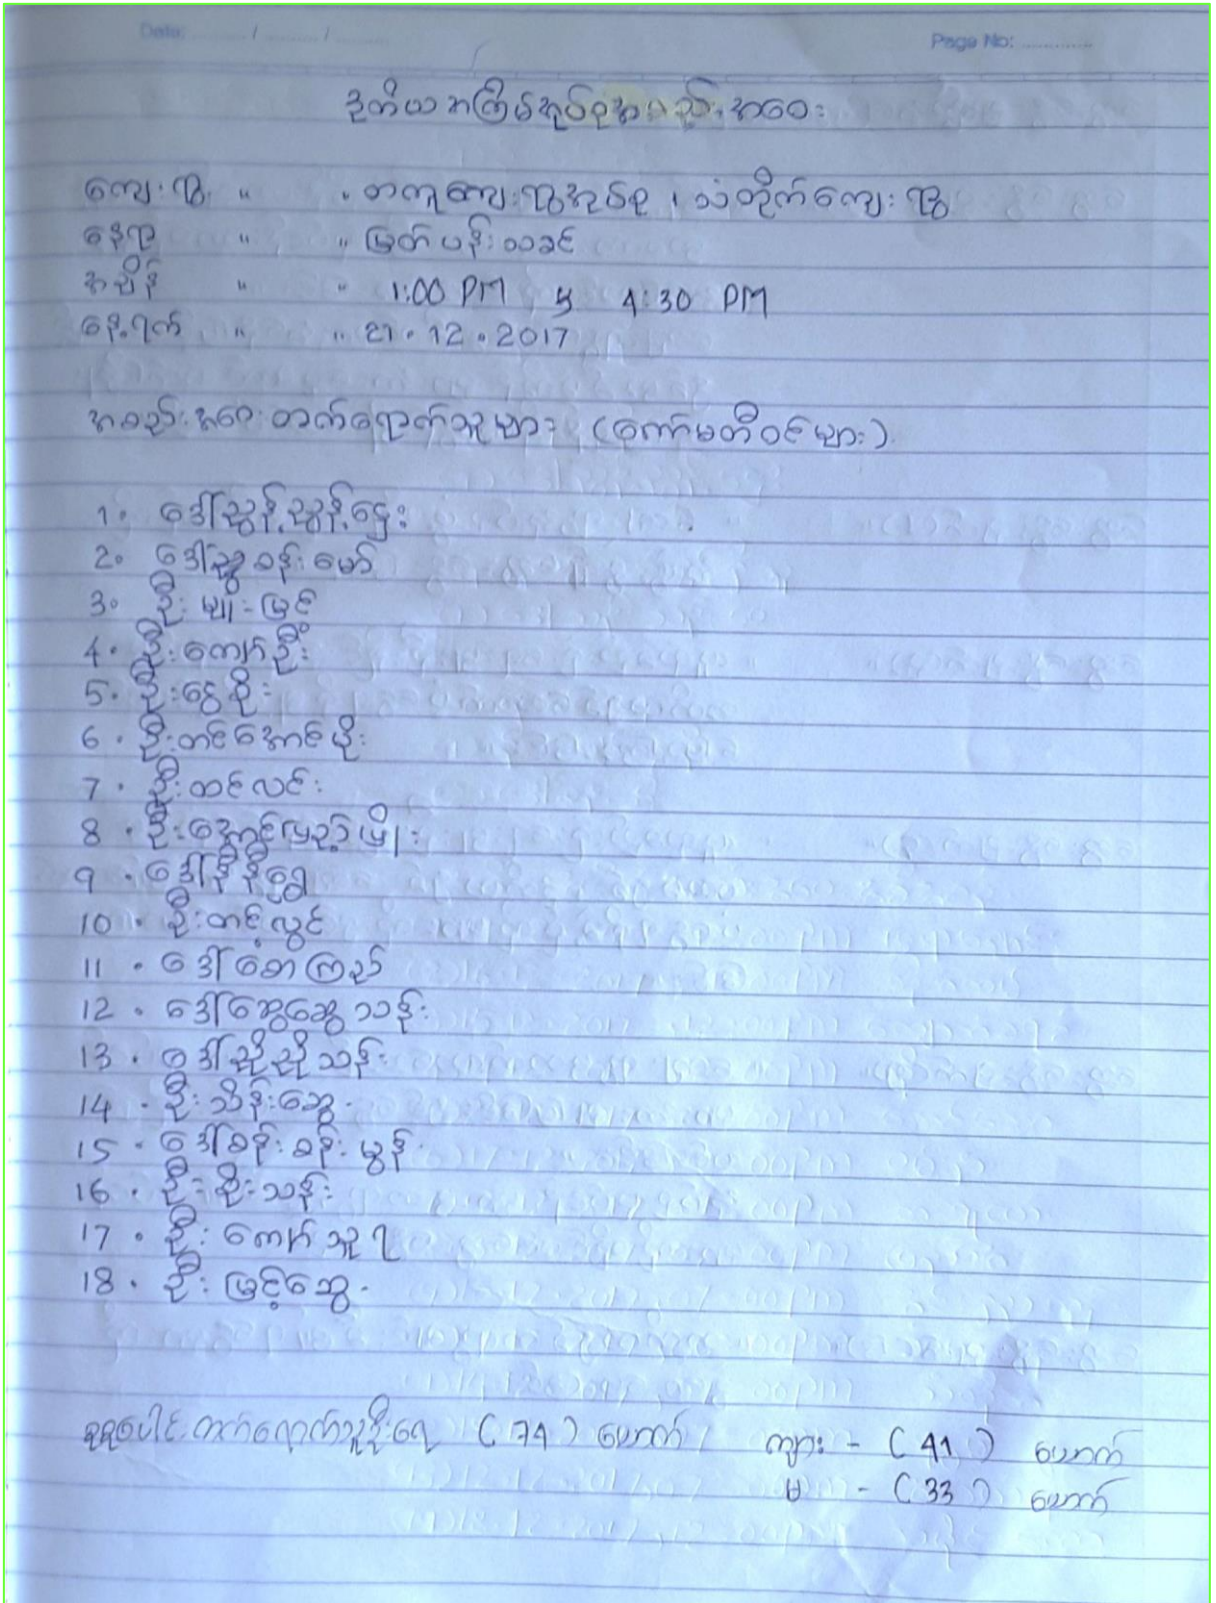 Date: ......... / ......... / .........
Page No: .............
ဒုတိယအကြိမ်အုပ်စုအစည်းအဝေး
ကျေးရွာ " " တကူကျေးရွာအုပ်စု ၊ သံတိုက်ကျေးရွာ
နေရာ " " မြတ်ပန်းသခင်
အချိန် " " 1:00 PM မှ 4:30 PM
နေ့ရက် " " 21.12.2017
အစည်းအဝေးတက်ရောက်သူများ (ကော်မတီဝင်များ)
1. ဒေါ်ညွန့်ညွန့်ဌေး
2. ဒေါ်ညွှန့်ခန်းမော်
3. ဦးမျိုးမြင့်
4. ဦးကျော်ဦး
5. ဦးငွေစိုး
6. ဦးတင်အောင်မိုး
7. ဦးထင်လင်း
8. ဦးအောင်မြည့်မျိုး
9. ဒေါ်နီနီရွှေ
10. ဦးတင့်လွင်
11. ဒေါ်အေးကြည်
12. ဒေါ်ဆွေဆွေသန်း
13. ဒေါ်ညိုညိုသန်း
14. ဦးသိန်းဆွေ
15. ဒေါ်ခန်းခန်းမွန်
16. ဦးစိုးသန်း
17. ဦးကျော်သူရ
18. ဦးမြင့်ဆွေ
စုစုပေါင်းတက်ရောက်သူဦးရေ (74) ယောက် ကျား - (41) ယောက်
မ - (33) ယောက်